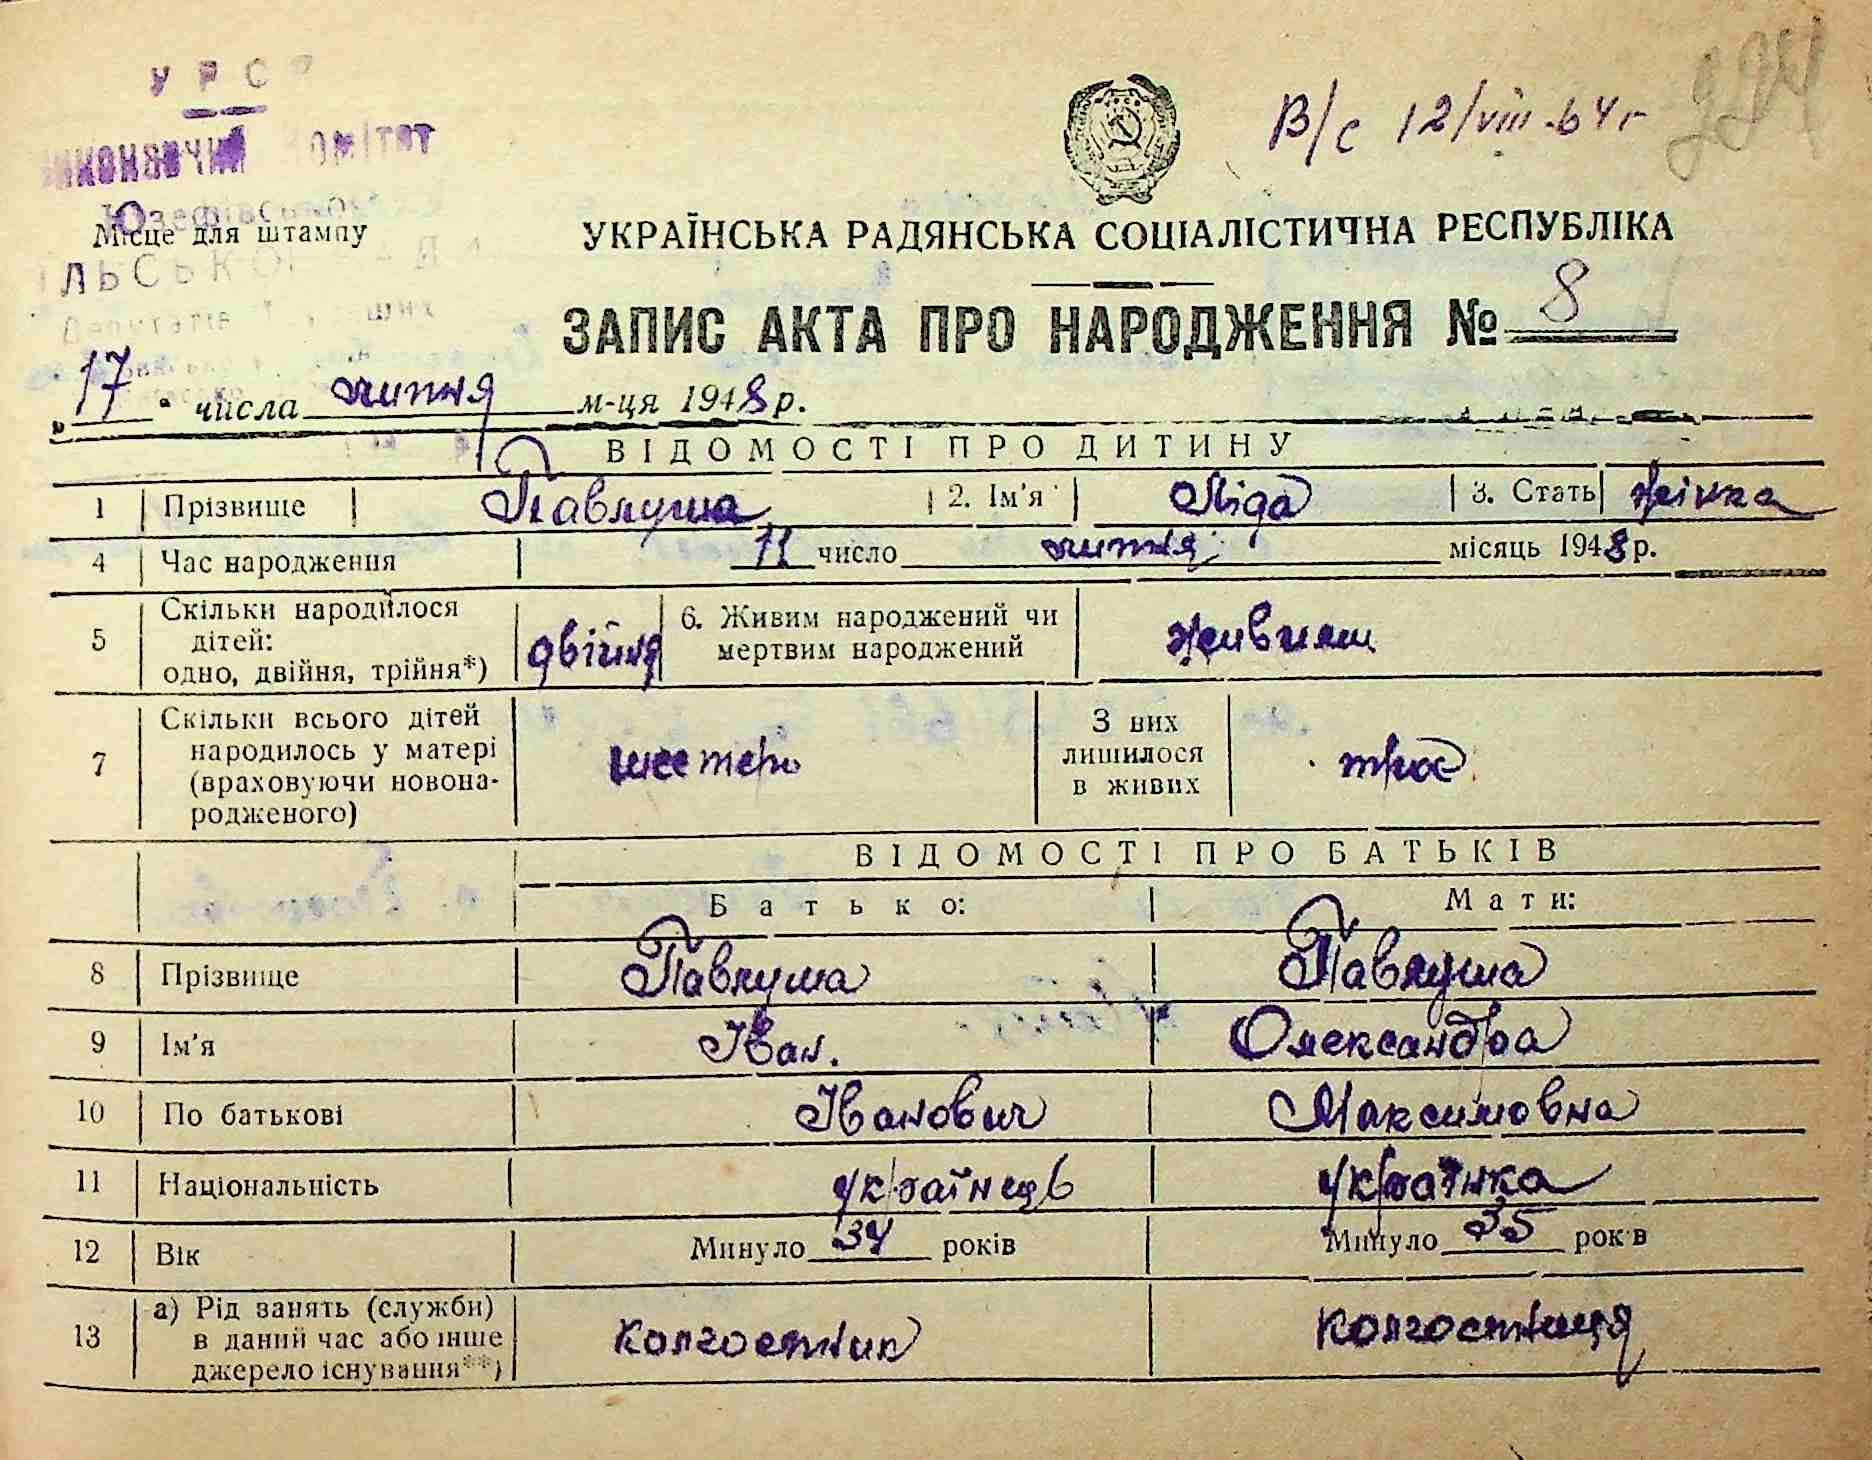 У Р С Р
ВИКОНАВЧИЙ КОМІТЕТ
Юзефівсько
Місце для штампу
ЛЬСЬКО
Депутатів
В/с 12/VIII-64 г
УКРАЇНСЬКА РАДЯНСЬКА СОЦІАЛІСТИЧНА РЕСПУБЛІКА
ЗАПИС АКТА ПРО НАРОДЖЕННЯ № 8
„17" числа липня м-ця 1948 р.
ВІДОМОСТІ ПРО ДИТИНУ
1 Прізвище Павлуша 2. Ім'я Ліда 3. Стать жінка
4 Час народження 11 число липня місяць 1948 р.
5 Скільки народилося дітей: одно, двійня, трійня*) двійня 6. Живим народжений чи мертвим народжений живими
7 Скільки всього дітей народилось у матері (враховуючи новонародженого) шестеро З них лишилося в живих троє
ВІДОМОСТІ ПРО БАТЬКІВ
Батько: Мати:
8 Прізвище Павлуша Павлуша
9 Ім'я Іван. Олександра
10 По батькові Іванович Максимовна
11 Національність українець українка
12 Вік Минуло 34 років Минуло 35 років
13 а) Рід занять (служби) в даний час або інше джерело існування**) колгоспник колгоспниця